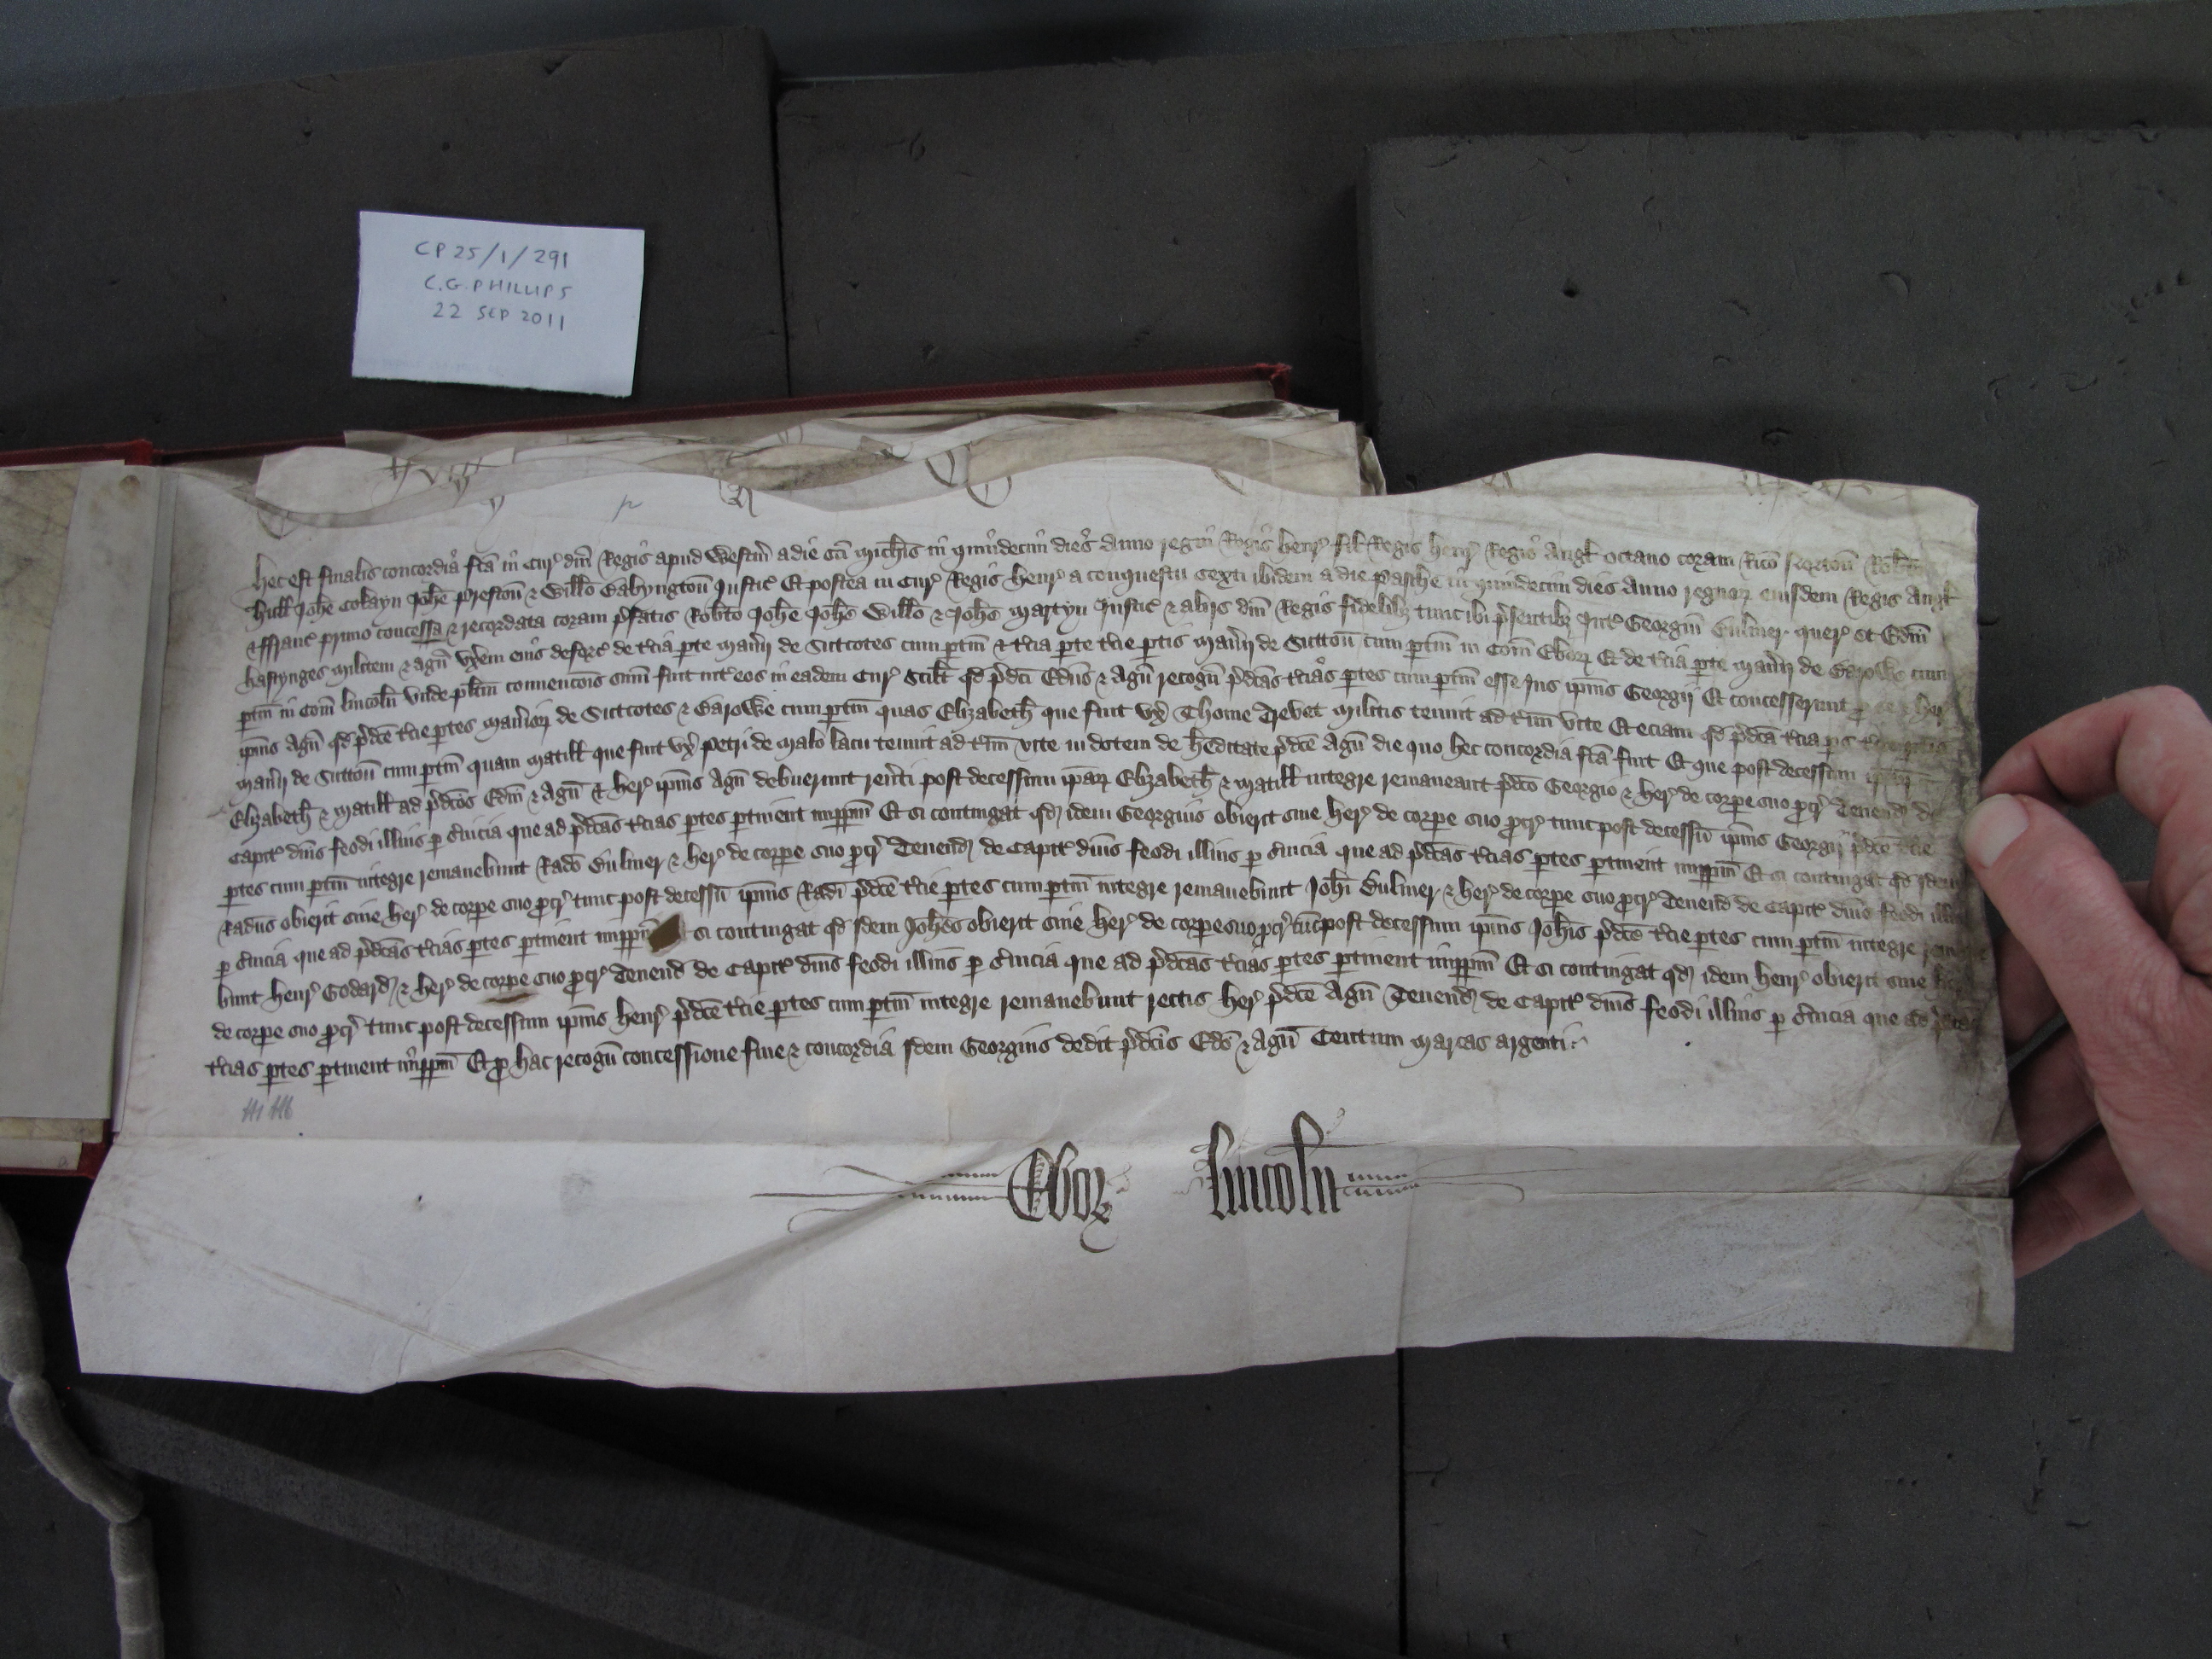 CP 25/1/291
C.G. PHILLIPS
22 SEP 2011
Hec est finalis concordia fc̄a in Cur̉ dn̄i Regis apud Westm̄ a die sc̄i Mich̄is in quindecim dies Anno regni Regis Henr̉ fil̄ Regis Henr̉ Regis Angl̄ octauo coram Ric̄o Norton̄ Rob̄to
Hull̄ Joh̄e Cokayn Joh̄e Preston̄ & Will̄o Babyngton̄ Justic̉ Et postea in Cur̉ Regis Henr̉ a conquestu sexti ibidem a die Pasche in quindecim dies Anno regnoꝝ eiusdem Regis Angl̄
& ffranc̉ primo concessa & recordata coram p̉fatis Rob̄to Joh̄e Joh̄e Will̄o & Joh̄e Martyn Justic̉ & aliis dn̄i Regis fidelibȝ tunc ibi p̉sentibȝ Int̉ Georgiū Bulmer quer̉ et Edm̄
Hastynges militem & Agn̄ vxem eius deforc̉ de t̉cia ꝑte man̉ij de Suttcotes cum ꝑtin̄ & t̉cia ꝑte t̉cie ꝑtis man̉ij de Sutton̄ cum ꝑtin̄ in Com̄ Eboꝝ Et de t̉cia ꝑte man̉ij de Barowe cum
ꝑtin̄ in Com̄ Lincoln̄ Vnde pl̄itm conuenc̄ois sum̄ fuit int̉ eos in eadem Cur̉ Scilt̄ qd̄ p̉dc̄i Edm̄s & Agn̄ recogn̄ p̉dc̄as t̉cias ꝑtes cum ꝑtin̄ esse Jus ip̄ius Georgij Et concesserunt ꝑ se & her̉
ip̄ius Agn̄ qd̄ p̉dc̄e t̉cie ꝑtes man̉ioꝝ de Suttcotes & Barowe cum ꝑtin̄ quas Elizabeth̄ que fuit vx̉ Thome Hebet militis tenuit ad t̉m vite Et eciam qd̄ p̉dc̄a t̉cia ꝑs t̉cie ꝑtis
man̉ij de Sutton̄ cum ꝑtin̄ quam Matill̄ que fuit vx̉ Petri de Malo lacu tenuit ad t̉m vite in dotem de h̉editate p̉dc̄e Agn̄ die quo hec concordia fc̄a fuit Et que post decessum ip̄aꝝ
Elizabeth̄ & Matill̄ ad p̉dc̄os Edm̄ & Agn̄ & her̉ ip̄ius Agn̄ debuerunt reủti post decessum ip̄aꝝ Elizabeth̄ & Matill̄ integre remaneant p̉dc̄o Georgio & her̉ de corꝑe suo ꝓcr̉ Tenend̄ de
Capit̉ dn̄is feodi illius ꝑ s̉uicia que ad p̉dc̄as t̉cias ꝑtes ꝑtinent imꝑꝑm̄ Et si contingat qd̄ idem Georgius obierit sine her̉ de corꝑe suo ꝓcr̉ tunc post decessū ip̄ius Georgij p̉dc̄e t̉cie
ꝑtes cum ꝑtin̄ integre remanebunt Rad̄o Bulmer & her̉ de corꝑe suo ꝓcr̉ Tenend̄ de Capit̉ dn̄is feodi illius ꝑ s̉uicia que ad p̉dc̄as t̉cias ꝑtes ꝑtinent imꝑꝑm̄ Et si contingat qd̄ idem
Rad̄us obierit sine her̉ de corꝑe suo ꝓcr̉ tunc post decessū ip̄ius Rad̄i p̉dc̄e t̉cie ꝑtes cum ꝑtin̄ integre remanebunt Joh̄i Bulmer & her̉ de corꝑe suo ꝓcr̉ Tenend̄ de Capit̉ dn̄is feodi illius
ꝑ s̉uicia que ad p̉dc̄as t̉cias ꝑtes ꝑtinent imꝑꝑm̄ si contingat qd̄ idem Joh̄es obierit sine her̉ de corꝑe suo ꝓcr̉ tūc post decessum ip̄ius Joh̄is p̉dc̄e t̉cie ꝑtes cum ꝑtin̄ integre remane
bunt Henr̉ Godard̄ & her̉ de corꝑe suo ꝓcr̉ Tenend̄ de Capit̉ dn̄is feodi illius ꝑ s̉uicia que ad p̉dc̄as t̉cias ꝑtes ꝑtinent imꝑꝑm̄ Et si contingat qd̄ idem Henr̉ obierit sine her̉
de corꝑe suo ꝓcr̉ tunc post decessum ip̄ius Henr̉ p̉dc̄e t̉cie ꝑtes cum ꝑtin̄ integre remanebunt rectis her̉ p̉dc̄e Agn̄ Tenend̄ de Capit̉ dn̄is feodi illius ꝑ s̉uicia que ad p̉dc̄as
t̉cias ꝑtes ꝑtinent imꝑꝑm̄ Et ꝓ hac recogn̄ concessione fine & concordia idem Georgius dedit p̉dc̄is Edo̅ & Agn̄ Centum marcas argenti
Eboꝝ Lincoln̄